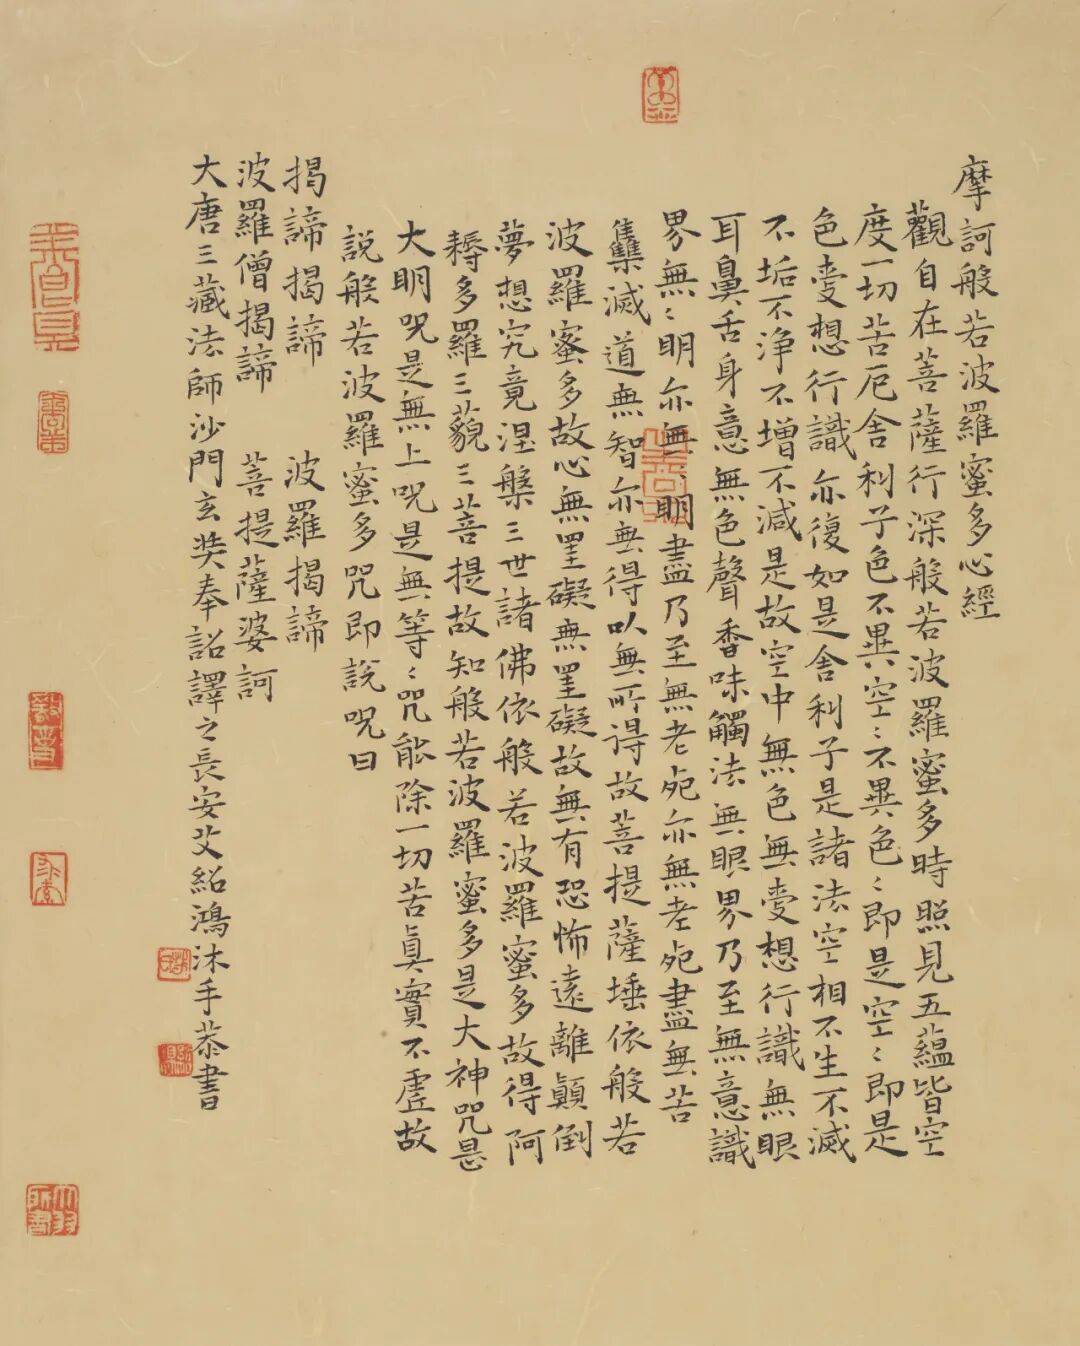 摩訶般若波羅蜜多心經
觀自在菩薩行深般若波羅蜜多時照見五蘊皆空
度一切苦厄舍利子色不異空〻不異色〻即是空〻即是
色受想行識亦復如是舍利子是諸法空相不生不滅
不垢不淨不增不減是故空中無色無受想行識無眼
耳鼻舌身意無色聲香味觸法無眼界乃至無意識
界無〻明亦無〻明盡乃至無老死亦無老死盡無苦
集滅道無智亦無得以無所得故菩提薩埵依般若
波羅蜜多故心無罣礙無罣礙故無有恐怖遠離顛倒
夢想究竟涅槃三世諸佛依般若波羅蜜多故得阿
耨多羅三藐三菩提故知般若波羅蜜多是大神咒是
大明咒是無上咒是無等〻咒能除一切苦真實不虛故
說般若波羅蜜多咒即說呪曰
揭諦揭諦 波羅揭諦
波羅僧揭諦 菩提薩婆訶
大唐三藏法師沙門玄奘奉詔譯之長安艾紹鴻沐手恭書